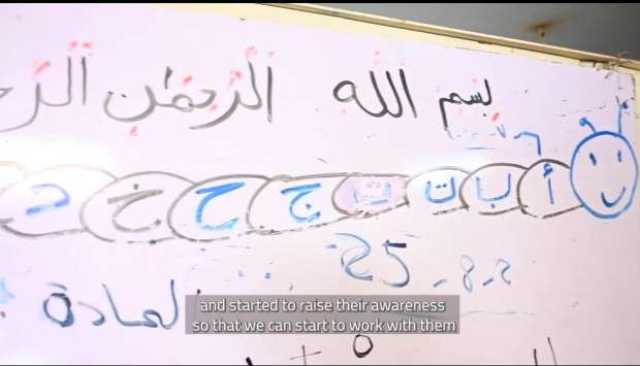 بسم الله الرحمن الر
أ ب ت ث ج ح خ د
25 -8-2
المادة :
and started to raise their awareness
so that we can start to work with them